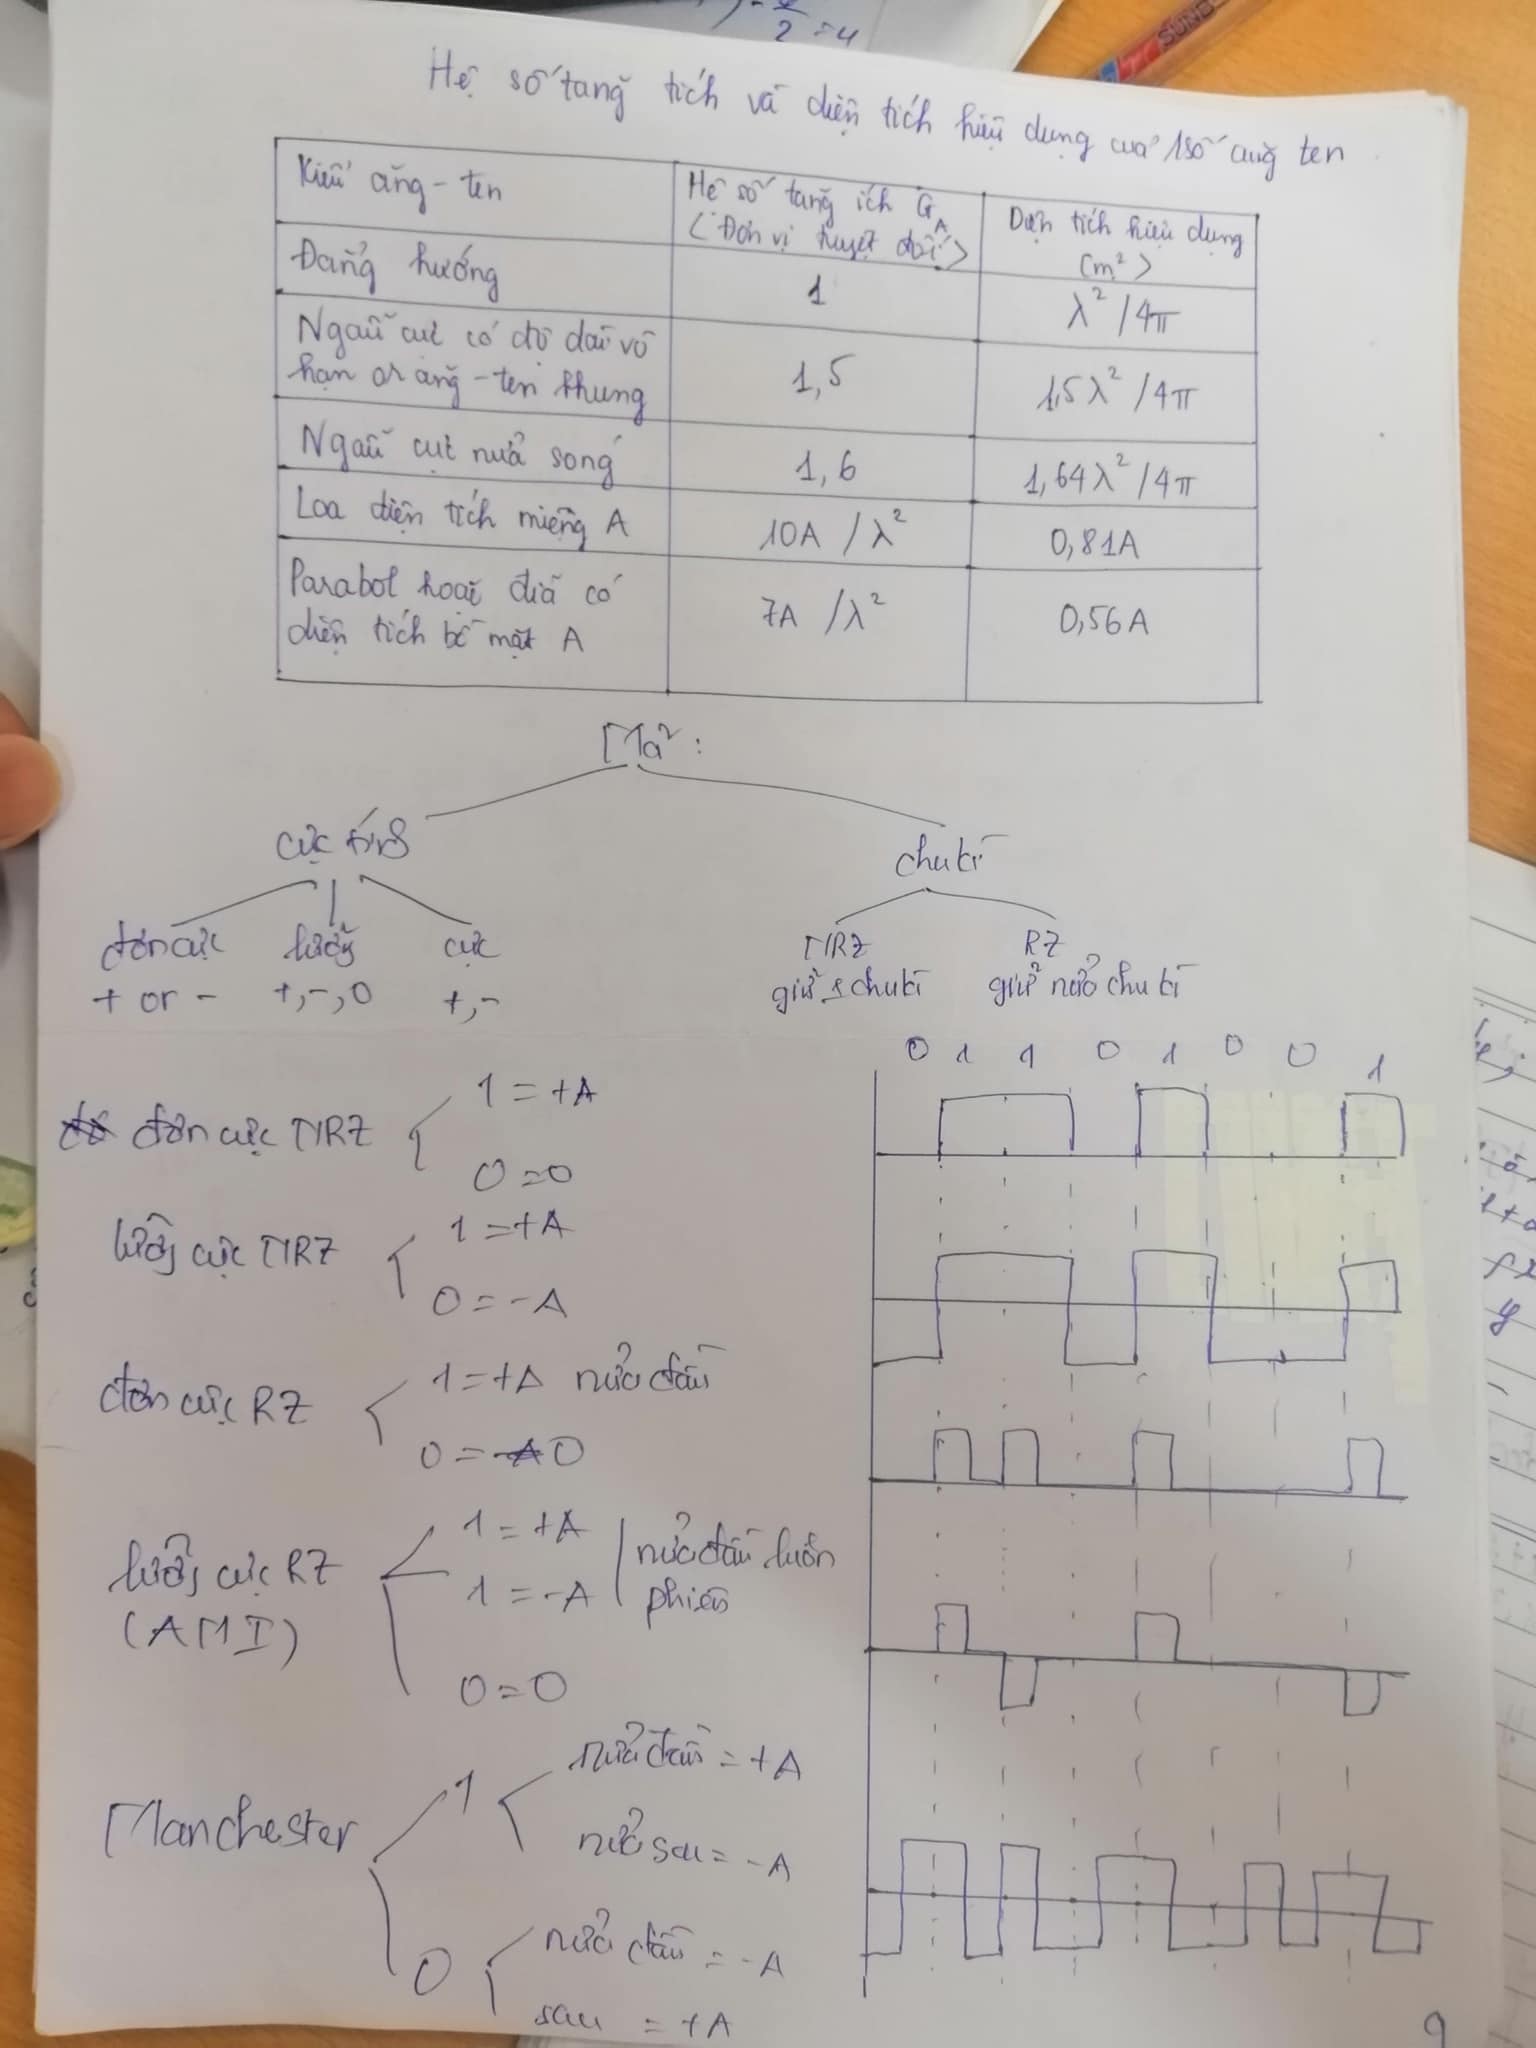 Hệ số tăng tích và diện tích hiệu dụng của 1 số ăng ten
Kiểu ăng-ten
Hệ số tăng ích G_A
(Đơn vị tuyệt đối)
Diện tích hiệu dụng
(m²)
Đẳng hướng
1
λ²/4π
Ngẫu cực có độ dài vô
hạn or ăng-ten khung
1,5
1,5λ²/4π
Ngẫu cực nửa sóng
1,6
1,64λ²/4π
Loa diện tích miệng A
10A/λ²
0,81A
Parabol hoặc đĩa có
diện tích bề mặt A
7A/λ²
0,56A
Mã²:
cực tính
chu kì
đơn cực
lưỡng
cực
+ or -
+,-,0
+,-
NRZ
RZ
giữ 1 chu kì
giữ nửa chu kì
0 1 1 0 1 0 0 1
đơn cực NRZ
1 = +A
0 = 0
lưỡng cực NRZ
1 = +A
0 = -A
đơn cực RZ
1 = +A nửa đầu
0 = 0
lưỡng cực RZ
(AMI)
1 = +A
1 = -A
nửa đầu luân
phiên
0 = 0
Manchester
1
nửa đầu = +A
nửa sau = -A
0
nửa đầu = -A
sau = +A
9